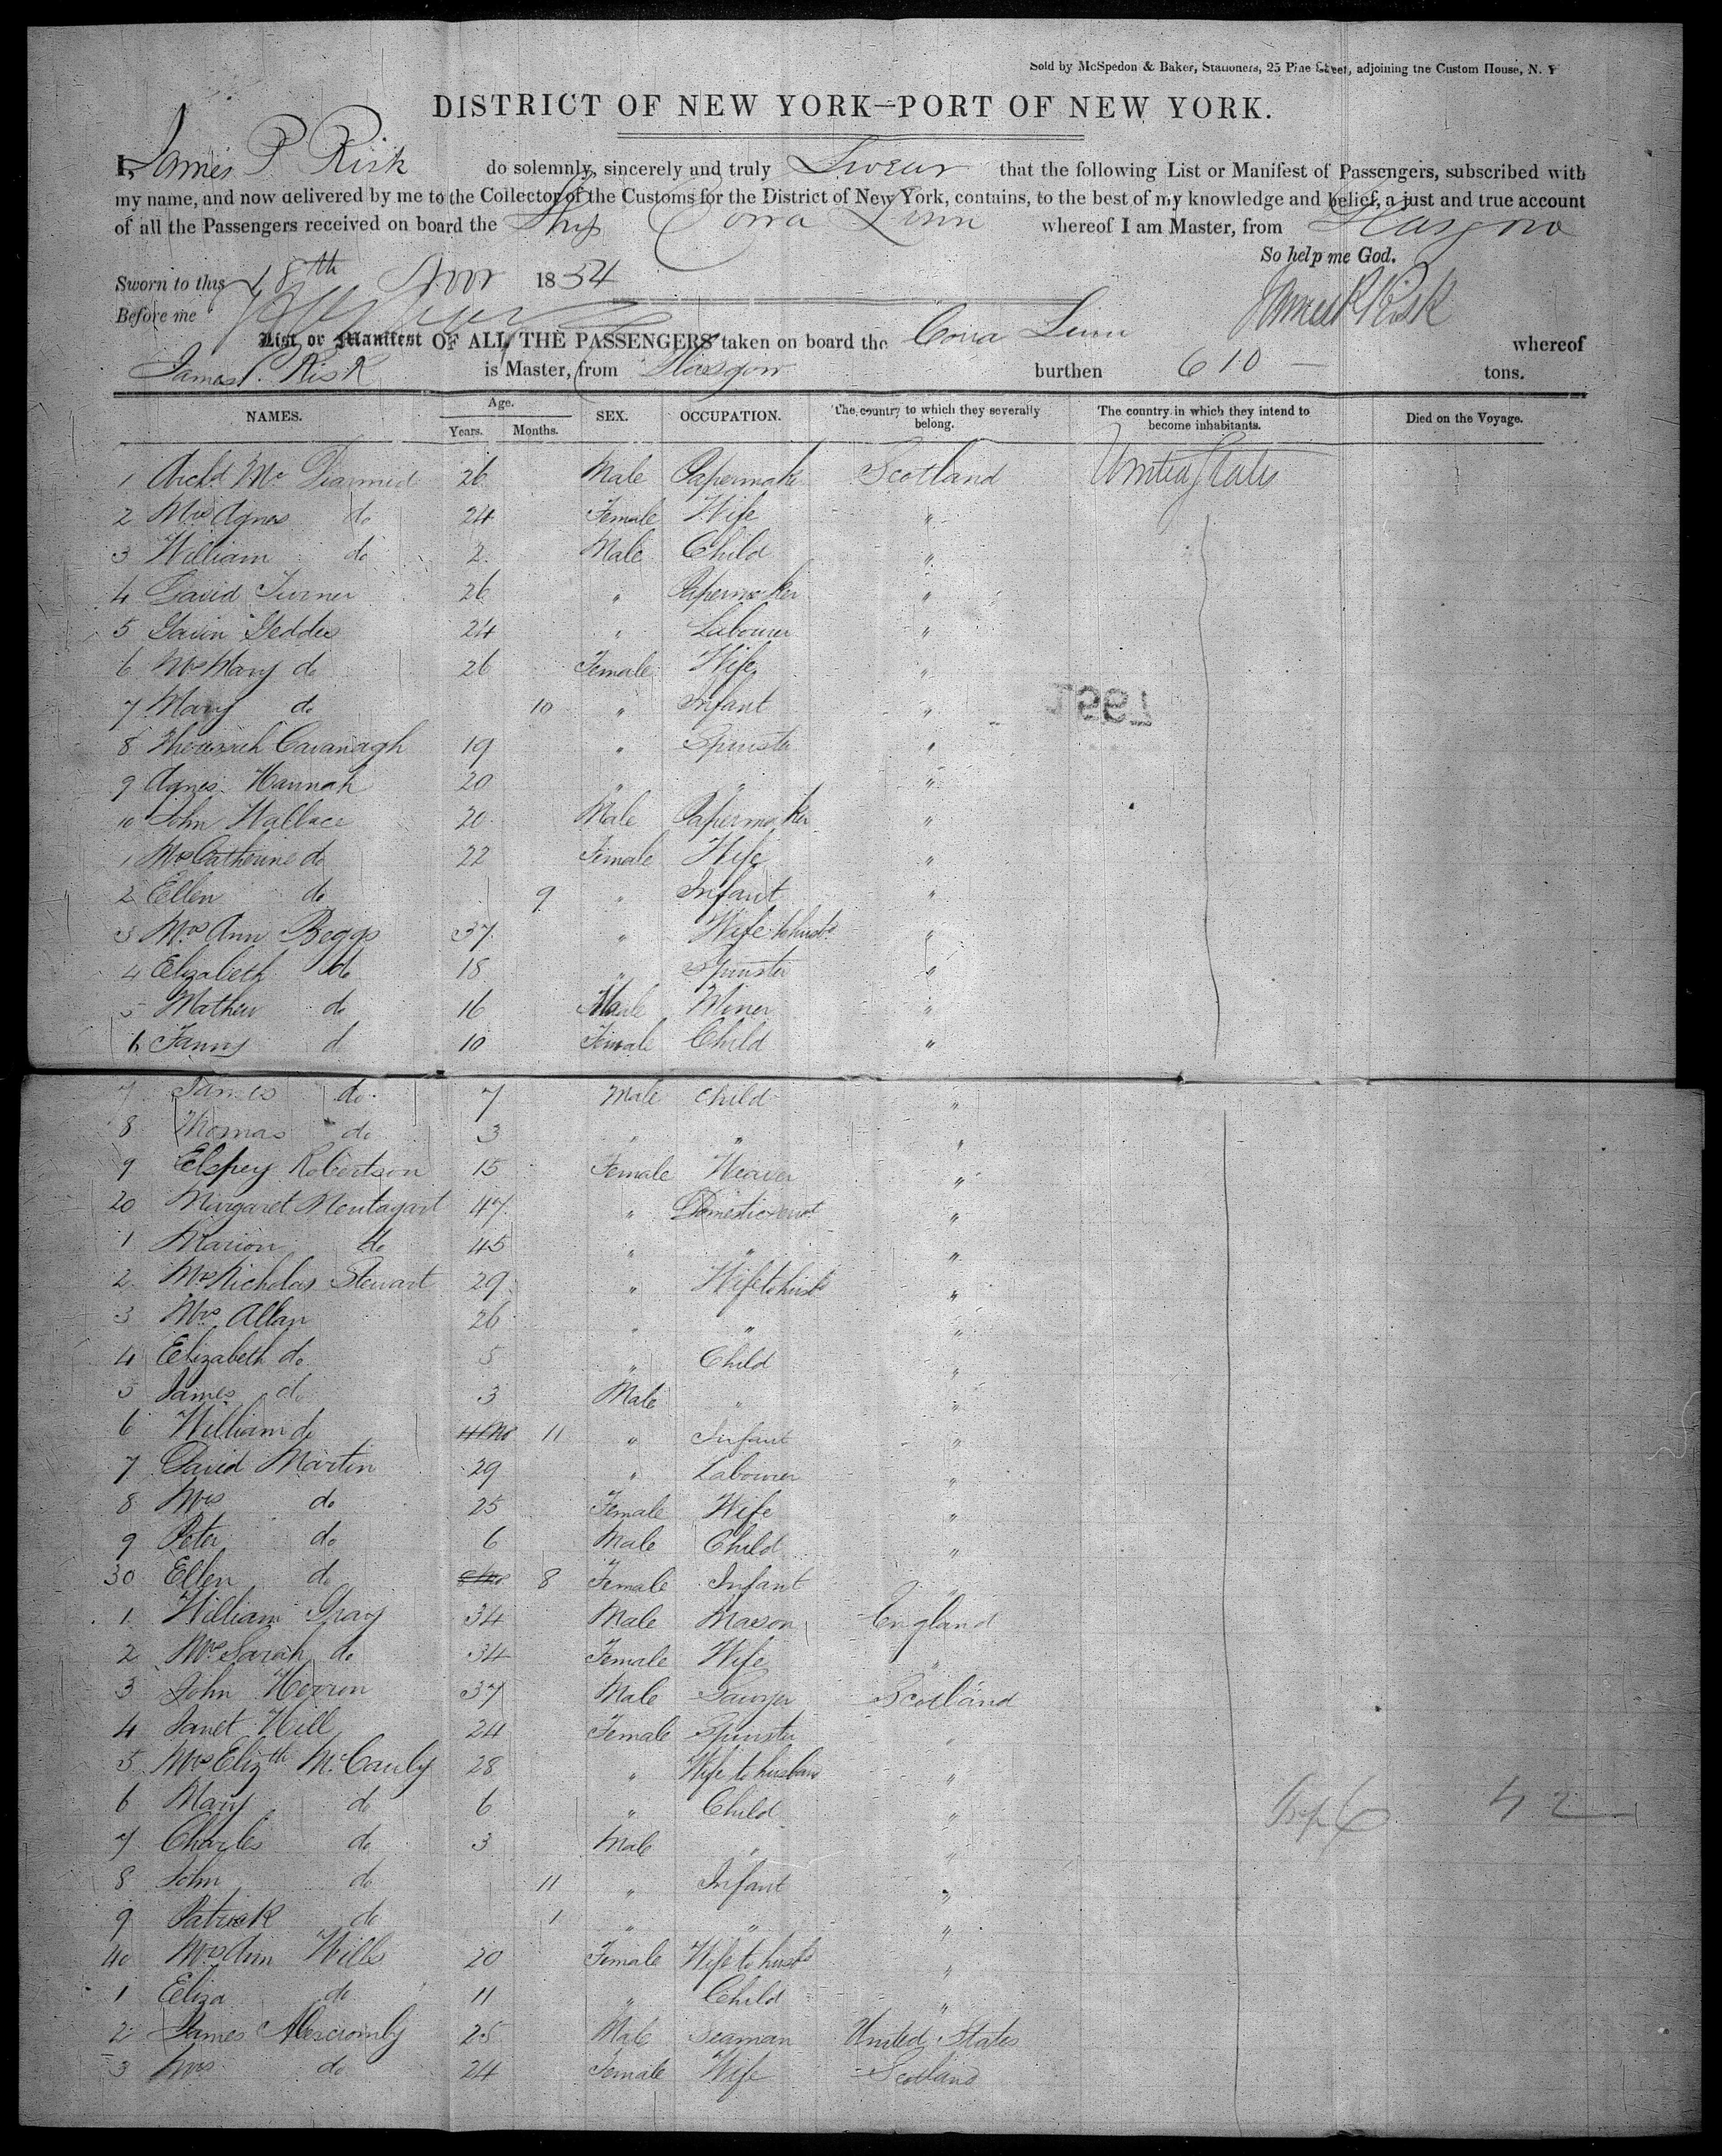 Sold by McSpedon & Baker, Stationers, 25 Pine Street, adjoining the Custom House, N. Y
DISTRICT OF NEW YORK—PORT OF NEW YORK.
I, James P Risk do solemnly, sincerely and truly Swear that the following List or Manifest of Passengers, subscribed with
my name, and now delivered by me to the Collector of the Customs for the District of New York, contains, to the best of my knowledge and belief, a just and true account
of all the Passengers received on board the Ship Corra Linn whereof I am Master, from Glasgow
So help me God.
Sworn to this 18th Novr 1854
James P Risk
Before me
List or Manifest OF ALL THE PASSENGERS taken on board the Corra Linn whereof
James P. Risk is Master, from Glasgow burthen 610 — tons.
NAMES. Age. Years. Months. SEX. OCCUPATION. The country to which they severally belong. The country in which they intend to become inhabitants. Died on the Voyage.
1 Archd Mc Diarmid 26 Male Papermaker Scotland United States
2 Mrs Agnes do 24 Female Wife "
3 William do 2 Male Child "
4 David Turner 26 " Papermaker "
5 Gavin Geddes 24 " Labourer "
6 Mrs Mary do 26 Female Wife "
7 Mary do 10 " Infant "
8 Cavanagh 19 " Spinster "
9 Agnes Hannah 20 " " "
10 John Wallace 20 Male Papermaker "
1 Mrs Catherine do 22 Female Wife "
2 Ellen do 9 " Infant "
3 Mrs Ann Beggs 37 " Wife to husbd "
4 Elizabeth do 18 " Spinster "
5 Mathew do 16 Male Miner "
6 Fanny do 10 Female Child "
7 James do 7 Male Child "
8 Thomas do 3 " " "
9 Elspey Robertson 15 Female Weaver "
20 Margaret 47 " Domestic servt "
1 Marion do 45 " " "
2 Mrs Nicholas Stewart 29 " Wife to husbd "
3 Mrs Allan 26 " " "
4 Elizabeth do 5 " Child "
5 James do 3 Male " "
6 William do 11 Mo 11 " Infant "
7 David Martin 29 " Labourer "
8 Mrs do 25 Female Wife "
9 Peter do 6 Male Child "
30 Ellen do 8 Mo 8 Female Infant "
1 William Gray 34 Male Mason England
2 Mrs Sarah do 34 Female Wife "
3 John Herron 37 Male Sawyer Scotland
4 Janet Hill 24 Female Spinster "
5 Mrs Elizth McCauly 28 " Wife to husband "
6 Mary do 6 " Child "
7 Charles do 3 Male " "
8 John do 11 " Infant "
9 Patrick do 1 " " "
40 Mrs Ann Wills 20 Female Wife to husbd "
1 Eliza do 11 " Child "
2 James Abercromby 25 Male Seaman United States
3 Mrs do 24 Female Wife Scotland